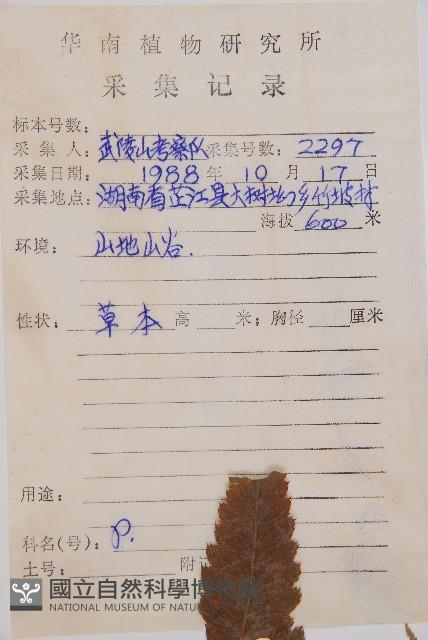 华南植物研究所
采集记录
标本号数：
采集人：武陵山考察队采集号数：2297
采集日期：1988年10月17日
采集地点：湖南省芷江县大树坳乡竹坡村
海拔 600 米
环境：山地山谷.
性状：草本 高 米；胸径 厘米
用途：
科名(号)：P.
土号： 附
國立自然科學博物館
NATIONAL MUSEUM OF NATU